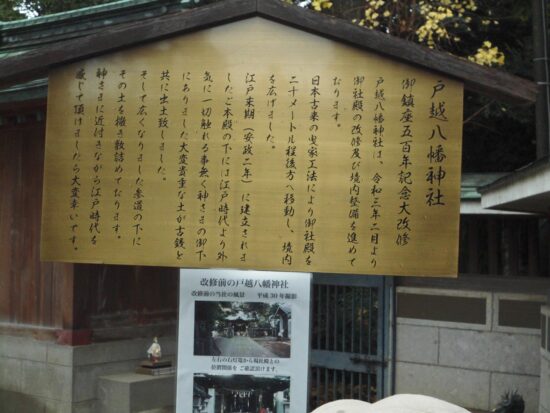 戸越八幡神社
御鎮座五百年記念大改修
戸越八幡神社は、令和三年二月より
御社殿の改修及び境内整備を進めて
おります。
日本古来の曳家工法により御社殿を
二十メートル程後方へ移動し、境内
を広げました。
江戸末期(安政二年)に建立されま
したご本殿の下には江戸時代より外
気に一切触れる事無く神さまの御下
にありました大変貴重な土が古銭と
共に出土致しました。
そして広くなりました参道の下に
その土を撒き敷詰めております。
神さまに近付きながら江戸時代を
感じて頂けましたら大変幸いです。
改修前の戸越八幡神社
改修前の当社の風景 平成30年撮影
左右の石灯篭から現社殿との
位置関係を ご確認頂けます。